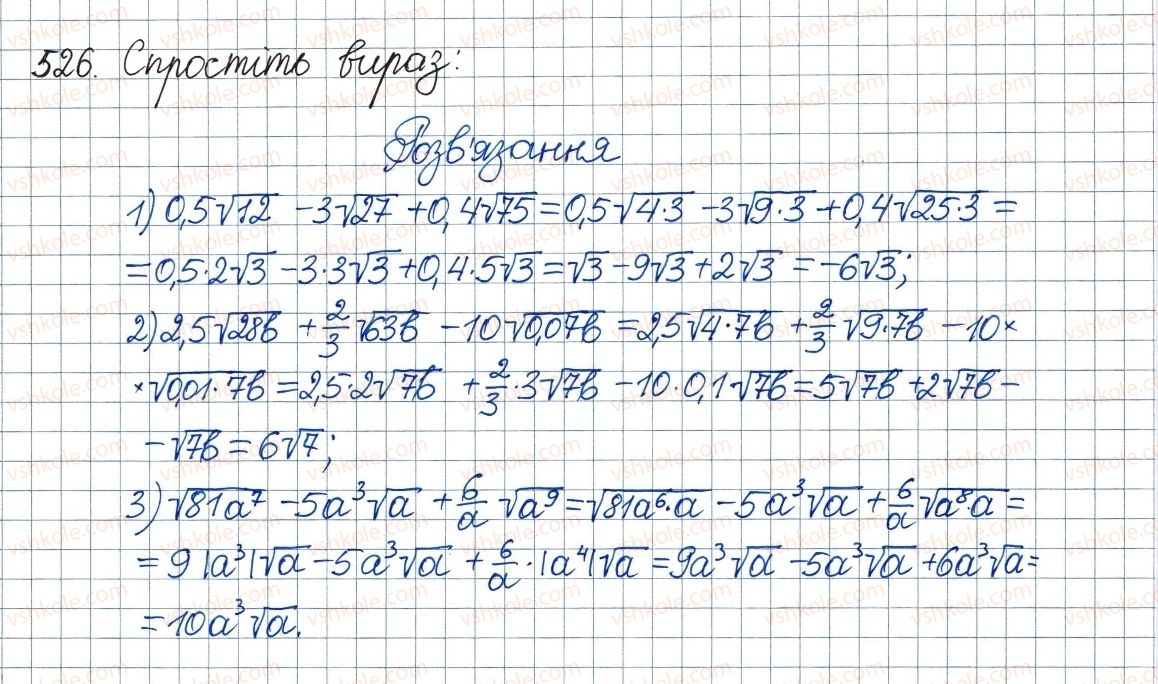 526. Спростіть вираз:
Розв'язання
1) 0,5√12 - 3√27 + 0,4√75 = 0,5√4·3 - 3√9·3 + 0,4√25·3 =
= 0,5·2√3 - 3·3√3 + 0,4·5√3 = √3 - 9√3 + 2√3 = -6√3;
2) 2,5√28b + 2/3 √63b - 10√0,07b = 2,5√4·7b + 2/3 √9·7b - 10×
×√0,01·7b = 2,5·2√7b + 2/3·3√7b - 10·0,1√7b = 5√7b + 2√7b -
- √7b = 6√7;
3) √81a⁷ - 5a³√a + 6/a √a⁹ = √81a⁶·a - 5a³√a + 6/a √a⁸·a =
= 9|a³|√a - 5a³√a + 6/a·|a⁴|√a = 9a³√a - 5a³√a + 6a³√a =
= 10a³√a.
vshkole.com